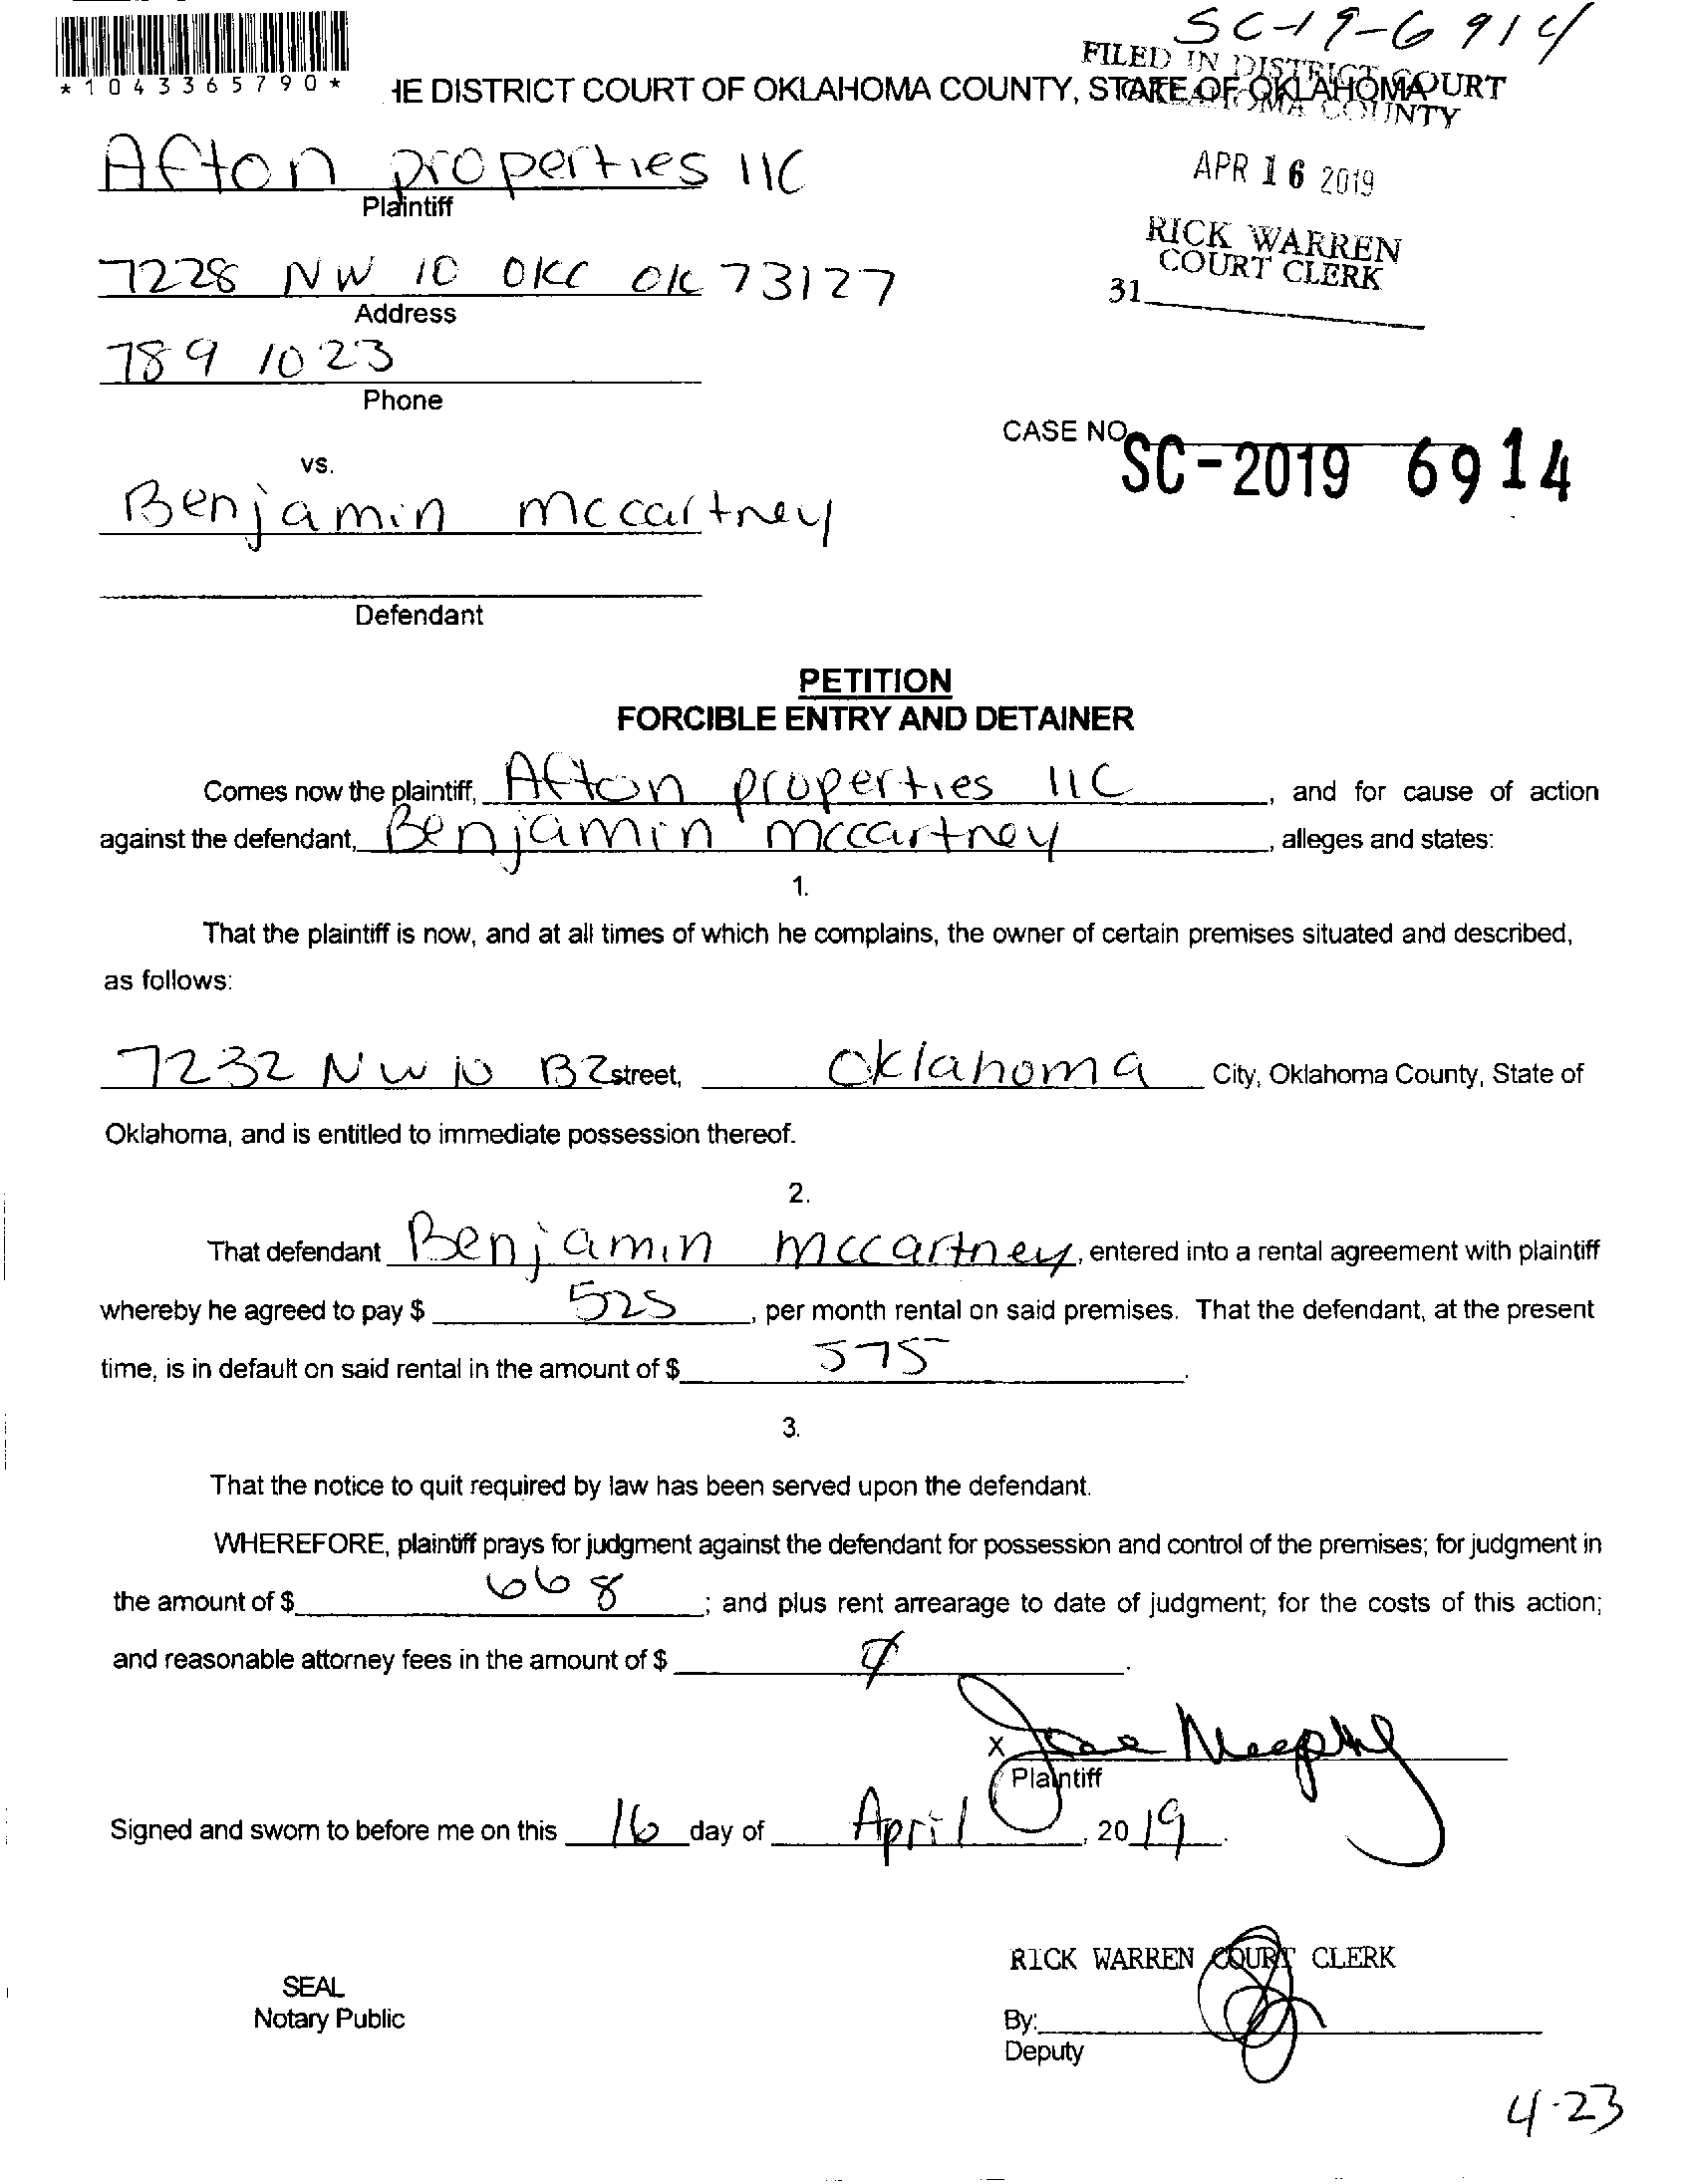 SC-19-6914
*1043365790*
FILED IN DISTRICT COURT
OKLAHOMA COUNTY
HE DISTRICT COURT OF OKLAHOMA COUNTY, STATE OF OKLAHOMA
Afton properties llC
Plaintiff
APR 16 2019
RICK WARREN
COURT CLERK
31
7228 NW 10 OKC OK 73127
Address
789 1023
Phone
CASE NO. SC-2019 6914
vs.
Benjamin mccartney
Defendant
PETITION
FORCIBLE ENTRY AND DETAINER
Comes now the plaintiff, Afton properties llC, and for cause of action
against the defendant, Benjamin mccartney, alleges and states:
1.
That the plaintiff is now, and at all times of which he complains, the owner of certain premises situated and described,
as follows:
7232 NW 10 B2 street, Oklahoma City, Oklahoma County, State of
Oklahoma, and is entitled to immediate possession thereof.
2.
That defendant Benjamin mccartney, entered into a rental agreement with plaintiff
whereby he agreed to pay $ 525, per month rental on said premises. That the defendant, at the present
time, is in default on said rental in the amount of $ 575.
3.
That the notice to quit required by law has been served upon the defendant.
WHEREFORE, plaintiff prays for judgment against the defendant for possession and control of the premises; for judgment in
the amount of $ 668; and plus rent arrearage to date of judgment; for the costs of this action;
and reasonable attorney fees in the amount of $
X
Plaintiff
Signed and sworn to before me on this 16 day of April, 2019.
RICK WARREN COURT CLERK
SEAL
Notary Public
By:
Deputy
4-23